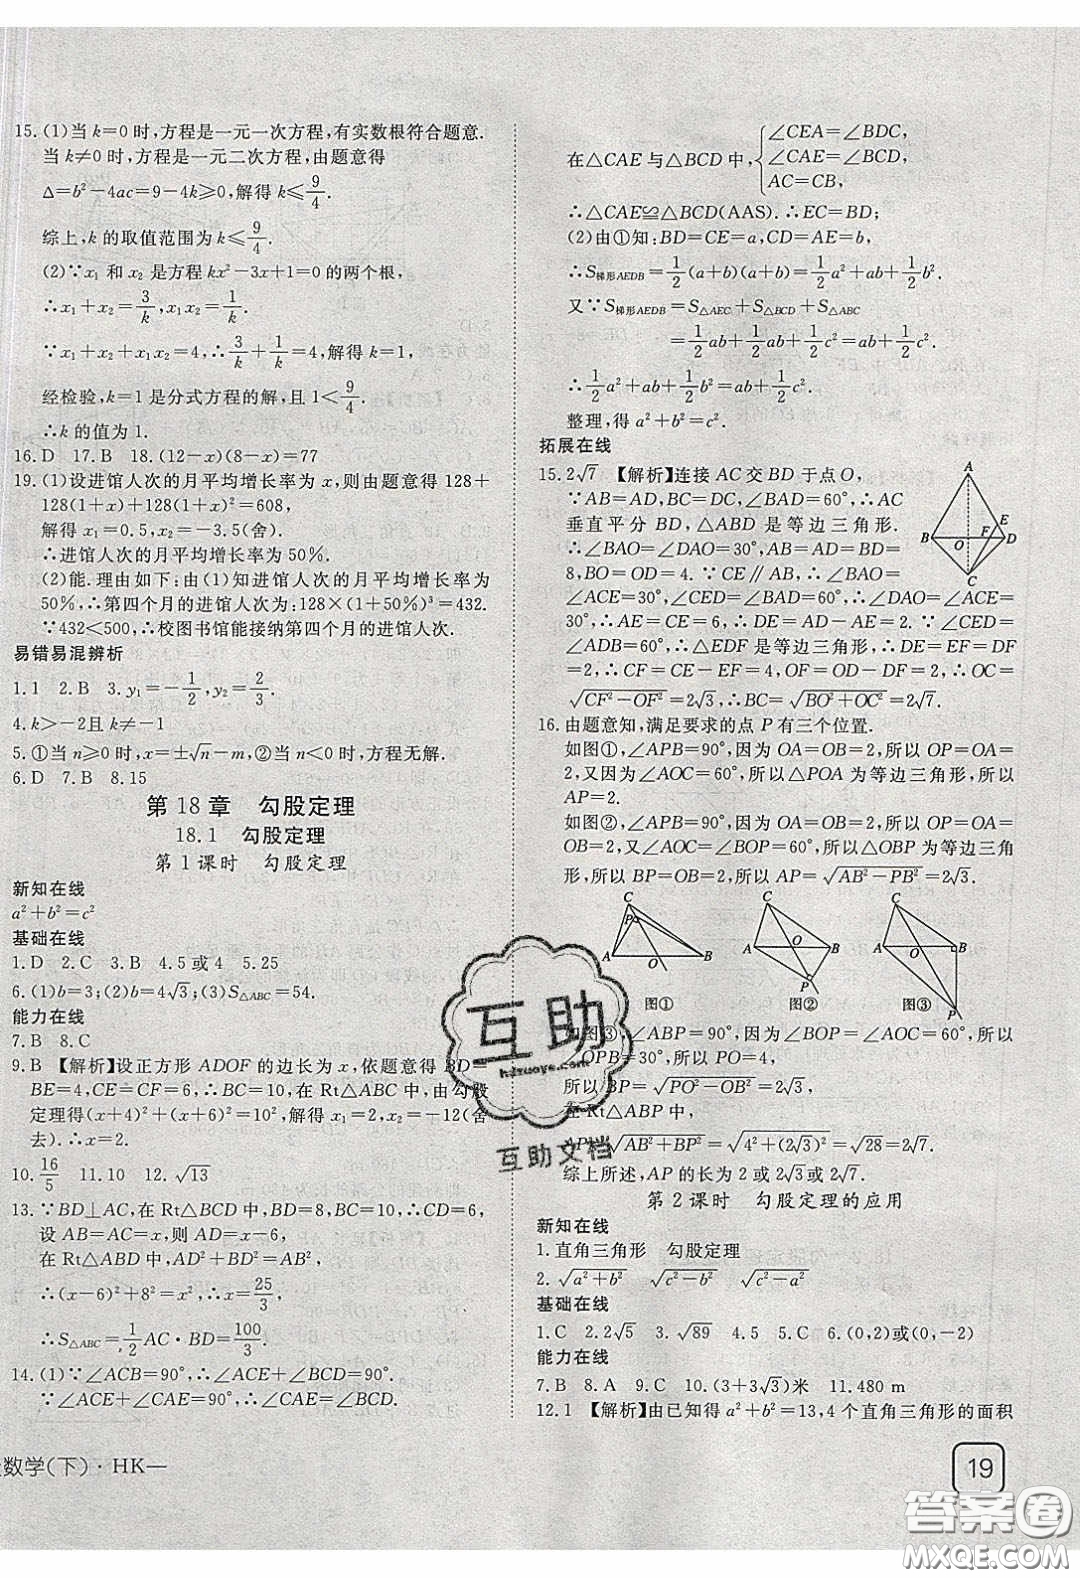 15.(1)当k=0时,方程是一元一次方程,有实数根符合题意.
当k≠0时,方程是一元二次方程,由题意得
Δ=b²-4ac=9-4k≥0,解得k≤9/4.
综上,k的取值范围为k≤9/4.
(2)∵x₁和x₂是方程kx²-3x+1=0的两个根,
∴x₁+x₂=3/k,x₁x₂=1/k.
∵x₁+x₂+x₁x₂=4,∴3/k+1/k=4,解得k=1.
经检验,k=1是分式方程的解,且1<9/4.
∴k的值为1.
16.D 17.B 18.(12-x)(8-x)=77
19.(1)设进馆人次的月平均增长率为x,依题意得128+
128(1+x)+128(1+x)²=608,
解得x₁=0.5,x₂=-3.5(舍).
∴进馆人次的月平均增长率为50%.
(2)能.理由如下:由(1)知进馆人次的月平均增长率为
50%,∴第四个月的进馆人次为:128×(1+50%)³=432.
∵432<500,∴校图书馆能接纳第四个月的进馆人次.
易错易混辨析
1.1 2.B 3.y₁=-1/2,y₂=2/3.
4.k>-2且k≠-1
5.①当n≥0时,x=±√n-m,②当n<0时,方程无解.
6.D 7.B 8.15
第18章 勾股定理
18.1 勾股定理
第1课时 勾股定理
新知在线
a²+b²=c²
基础在线
1.D 2.C 3.B 4.5或4 5.25
6.(1)b=3;(2)b=4√3;(3)S△ABC=54.
能力在线
7.B 8.C
9.B 【解析】设正方形ADOF的边长为x,依题意得BD=
BE=4,CE=CF=6,∴BC=10,在Rt△ABC中,由勾股
定理得(x+4)²+(x+6)²=10²,解得x₁=2,x₂=-12(舍
去).∴x=2.
10.16/5 11.10 12.√13
13.∵BD⊥AC,在Rt△BCD中,BD=8,BC=10,∴CD=6,
设AB=AC=x,则AD=x-6,
在Rt△ABD中,AD²+BD²=AB²,
∴(x-6)²+8²=x²,∴x=25/3,
∴S△ABC=1/2AC·BD=100/3.
14.(1)∵∠ACB=90°,∴∠ACE+∠BCD=90°.
∵∠ACE+∠CAE=90°,∴∠CAE=∠BCD.
在△CAE与△BCD中,{∠CEA=∠BDC,
∠CAE=∠BCD,
AC=CB,
∴△CAE≌△BCD(AAS).∴EC=BD;
(2)由①知:BD=CE=a,CD=AE=b,
∴S梯形AEDB=1/2(a+b)(a+b)=1/2a²+ab+1/2b².
又∵S梯形AEDB=S△AEC+S△BCD+S△ABC
=1/2ab+1/2ab+1/2c²=ab+1/2c².
∴1/2a²+ab+1/2b²=ab+1/2c².
整理,得a²+b²=c².
拓展在线
15.2√7 【解析】连接AC交BD于点O,
∵AB=AD,BC=DC,∠BAD=60°,∴AC
垂直平分BD,△ABD是等边三角形.
∴∠BAO=∠DAO=30°,AB=AD=BD=
8,BO=OD=4.∵CE∥AB,∴∠BAO=
∠ACE=30°,∠CED=∠BAD=60°,∴∠DAO=∠ACE=
30°,∴AE=CE=6,∴DE=AD-AE=2.∵∠CED=
∠ADB=60°,∴△EDF是等边三角形,∴DE=EF=DF
=2,∴CF=CE-EF=4,OF=OD-DF=2,∴OC=
√CF²-OF²=2√3,∴BC=√BO²+OC²=2√7.
A
B
O
F
E
D
C
16.由题意知,满足要求的点P有三个位置.
如图①,∠APB=90°,因为OA=OB=2,所以OP=OA=
2,又∠AOC=60°,所以△POA为等边三角形,所以
AP=2.
如图②,∠APB=90°,因为OA=OB=2,所以OP=OA
=OB=2,又∠AOC=∠BOP=60°,所以△OBP为等边三角
形,所以BP=OB=OA=2,所以AP=√AB²-PB²=2√3.
C
P
A
O
B
图①
C
A
O
B
P
图②
C
A
O
B
P
图③
如图③,∠ABP=90°,因为∠BOP=∠AOC=60°,所以
∠OPB=30°,所以PO=4,
所以BP=√PO²-OB²=2√3,
在Rt△ABP中,
AP=√AB²+BP²=√4²+(2√3)²=√28=2√7.
综上所述,AP的长为2或2√3或2√7.
第2课时 勾股定理的应用
新知在线
1.直角三角形 勾股定理
2.√a²+b² √c²-b² √c²-a²
基础在线
1.C 2.2√5 3.√89 4.5 5.C 6.(0,2)或(0,-2)
能力在线
7.B 8.A 9.C 10.(3+3√3)米 11.480 m
12.1 【解析】由已知得a²+b²=13,4个直角三角形的面积
数学(下)·HK—
19
互助
hdzuoye.com
互助文档
答案圈
MXQE.COM